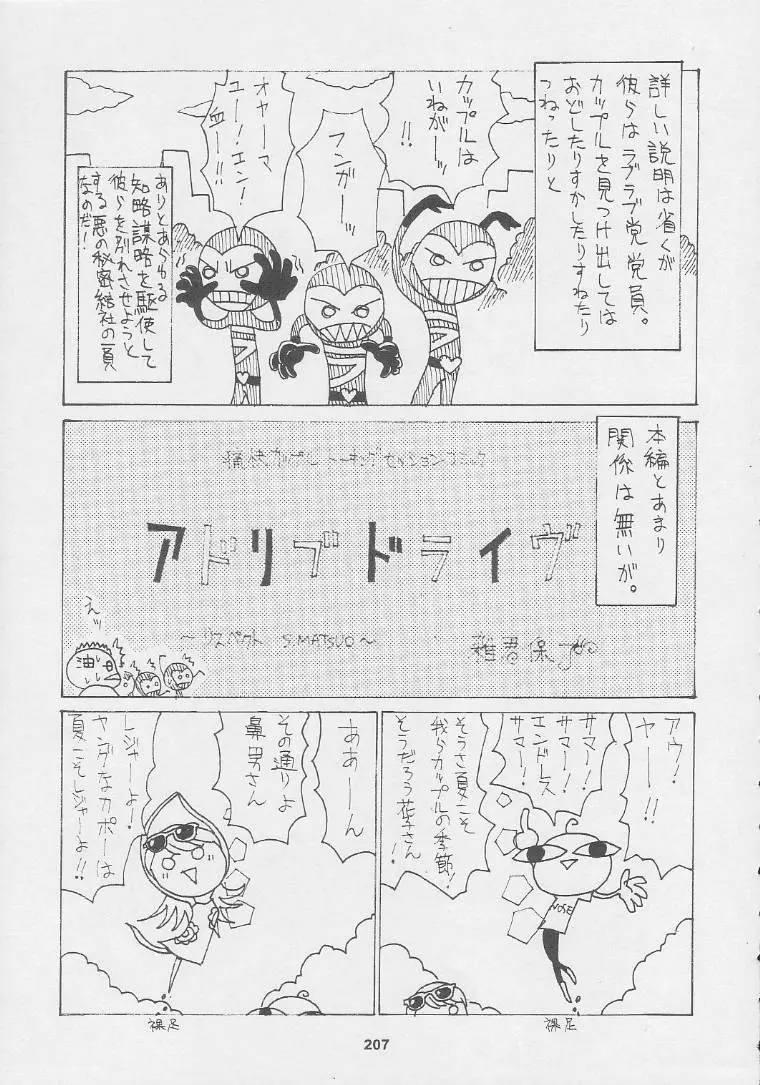 詳しい説明は省くが
彼らはラブラブ党党員。
カップルを見つけ出しては
おどしたりすかしたりすねたり
つねったりと
カップルは
いねがーッ
!!
フンガーッ
オヤーマ
ユー!エン!
血ー!!
ありとあらゆる
知略謀略を駆使して
彼らを別れさせようと
する悪の秘密結社の一員
なのだ!
本編とあまり
関係は無いが。
痛快カップルトーキングセッションコミック
アドリブドライヴ
〜リスペクト S.MATSUO〜
雅君保
えッ
油
アウ!
ヤーー!!
サマー!
サマー!
エンドレス
サマー!
そうさ夏こそ
我らカップルの季節!
そうだろう花子さん!
NOSE
裸足
ああーん
その通りよ
鼻男さん
レジャーよー!
ヤングなカポーは
夏こそレジャーよ!!
裸足
207